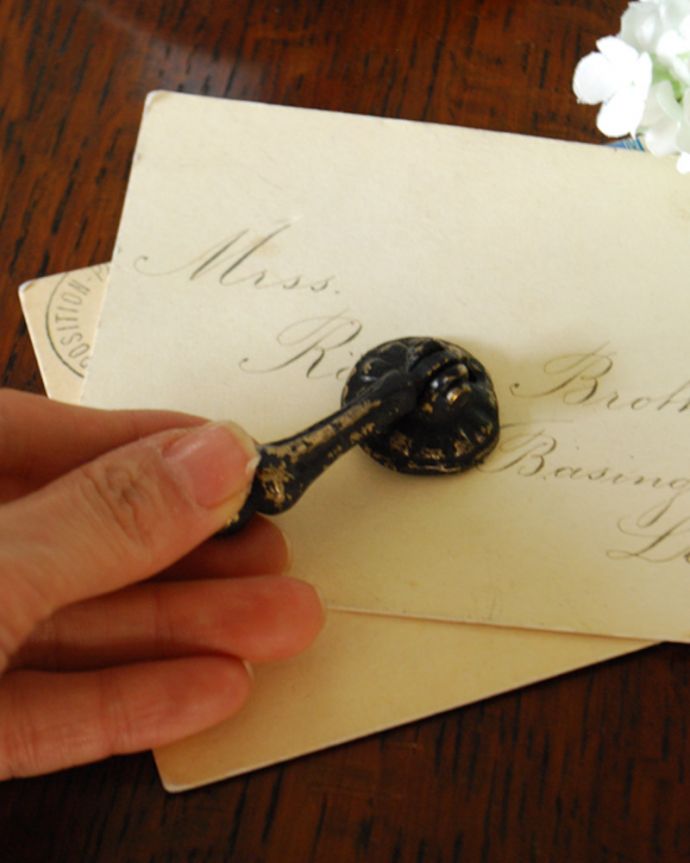 Mrss.
Ri Broth
Basing
OSITION-